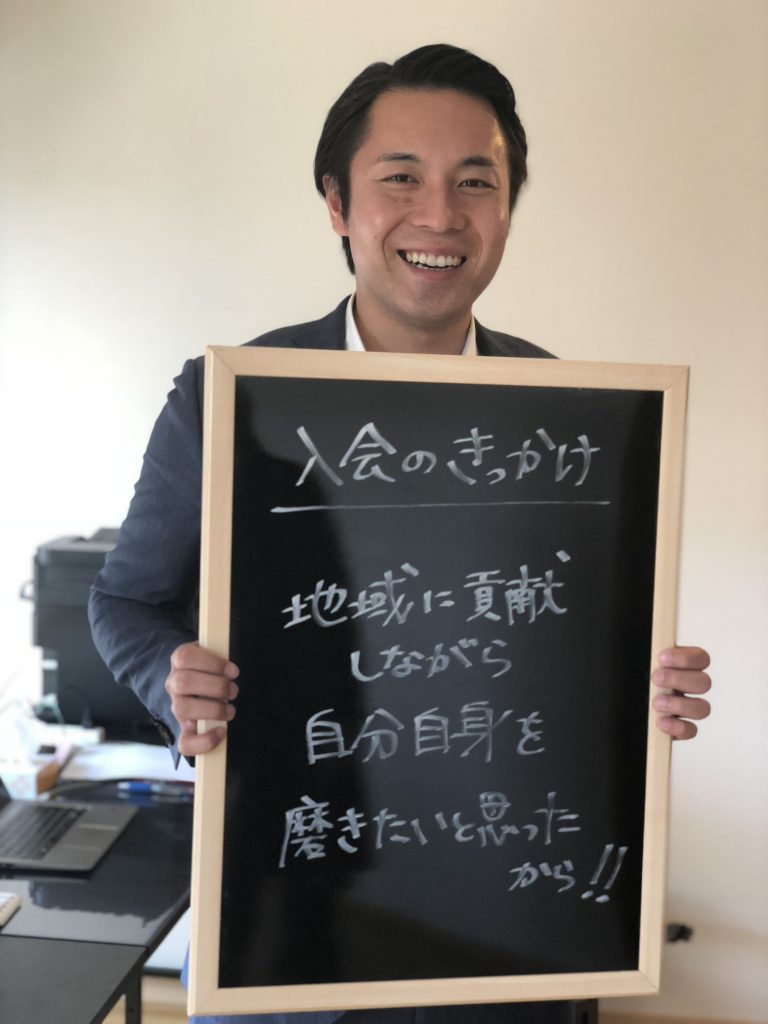 入会のきっかけ
地域に貢献
しながら
自分自身を
磨きたいと思った
から!!